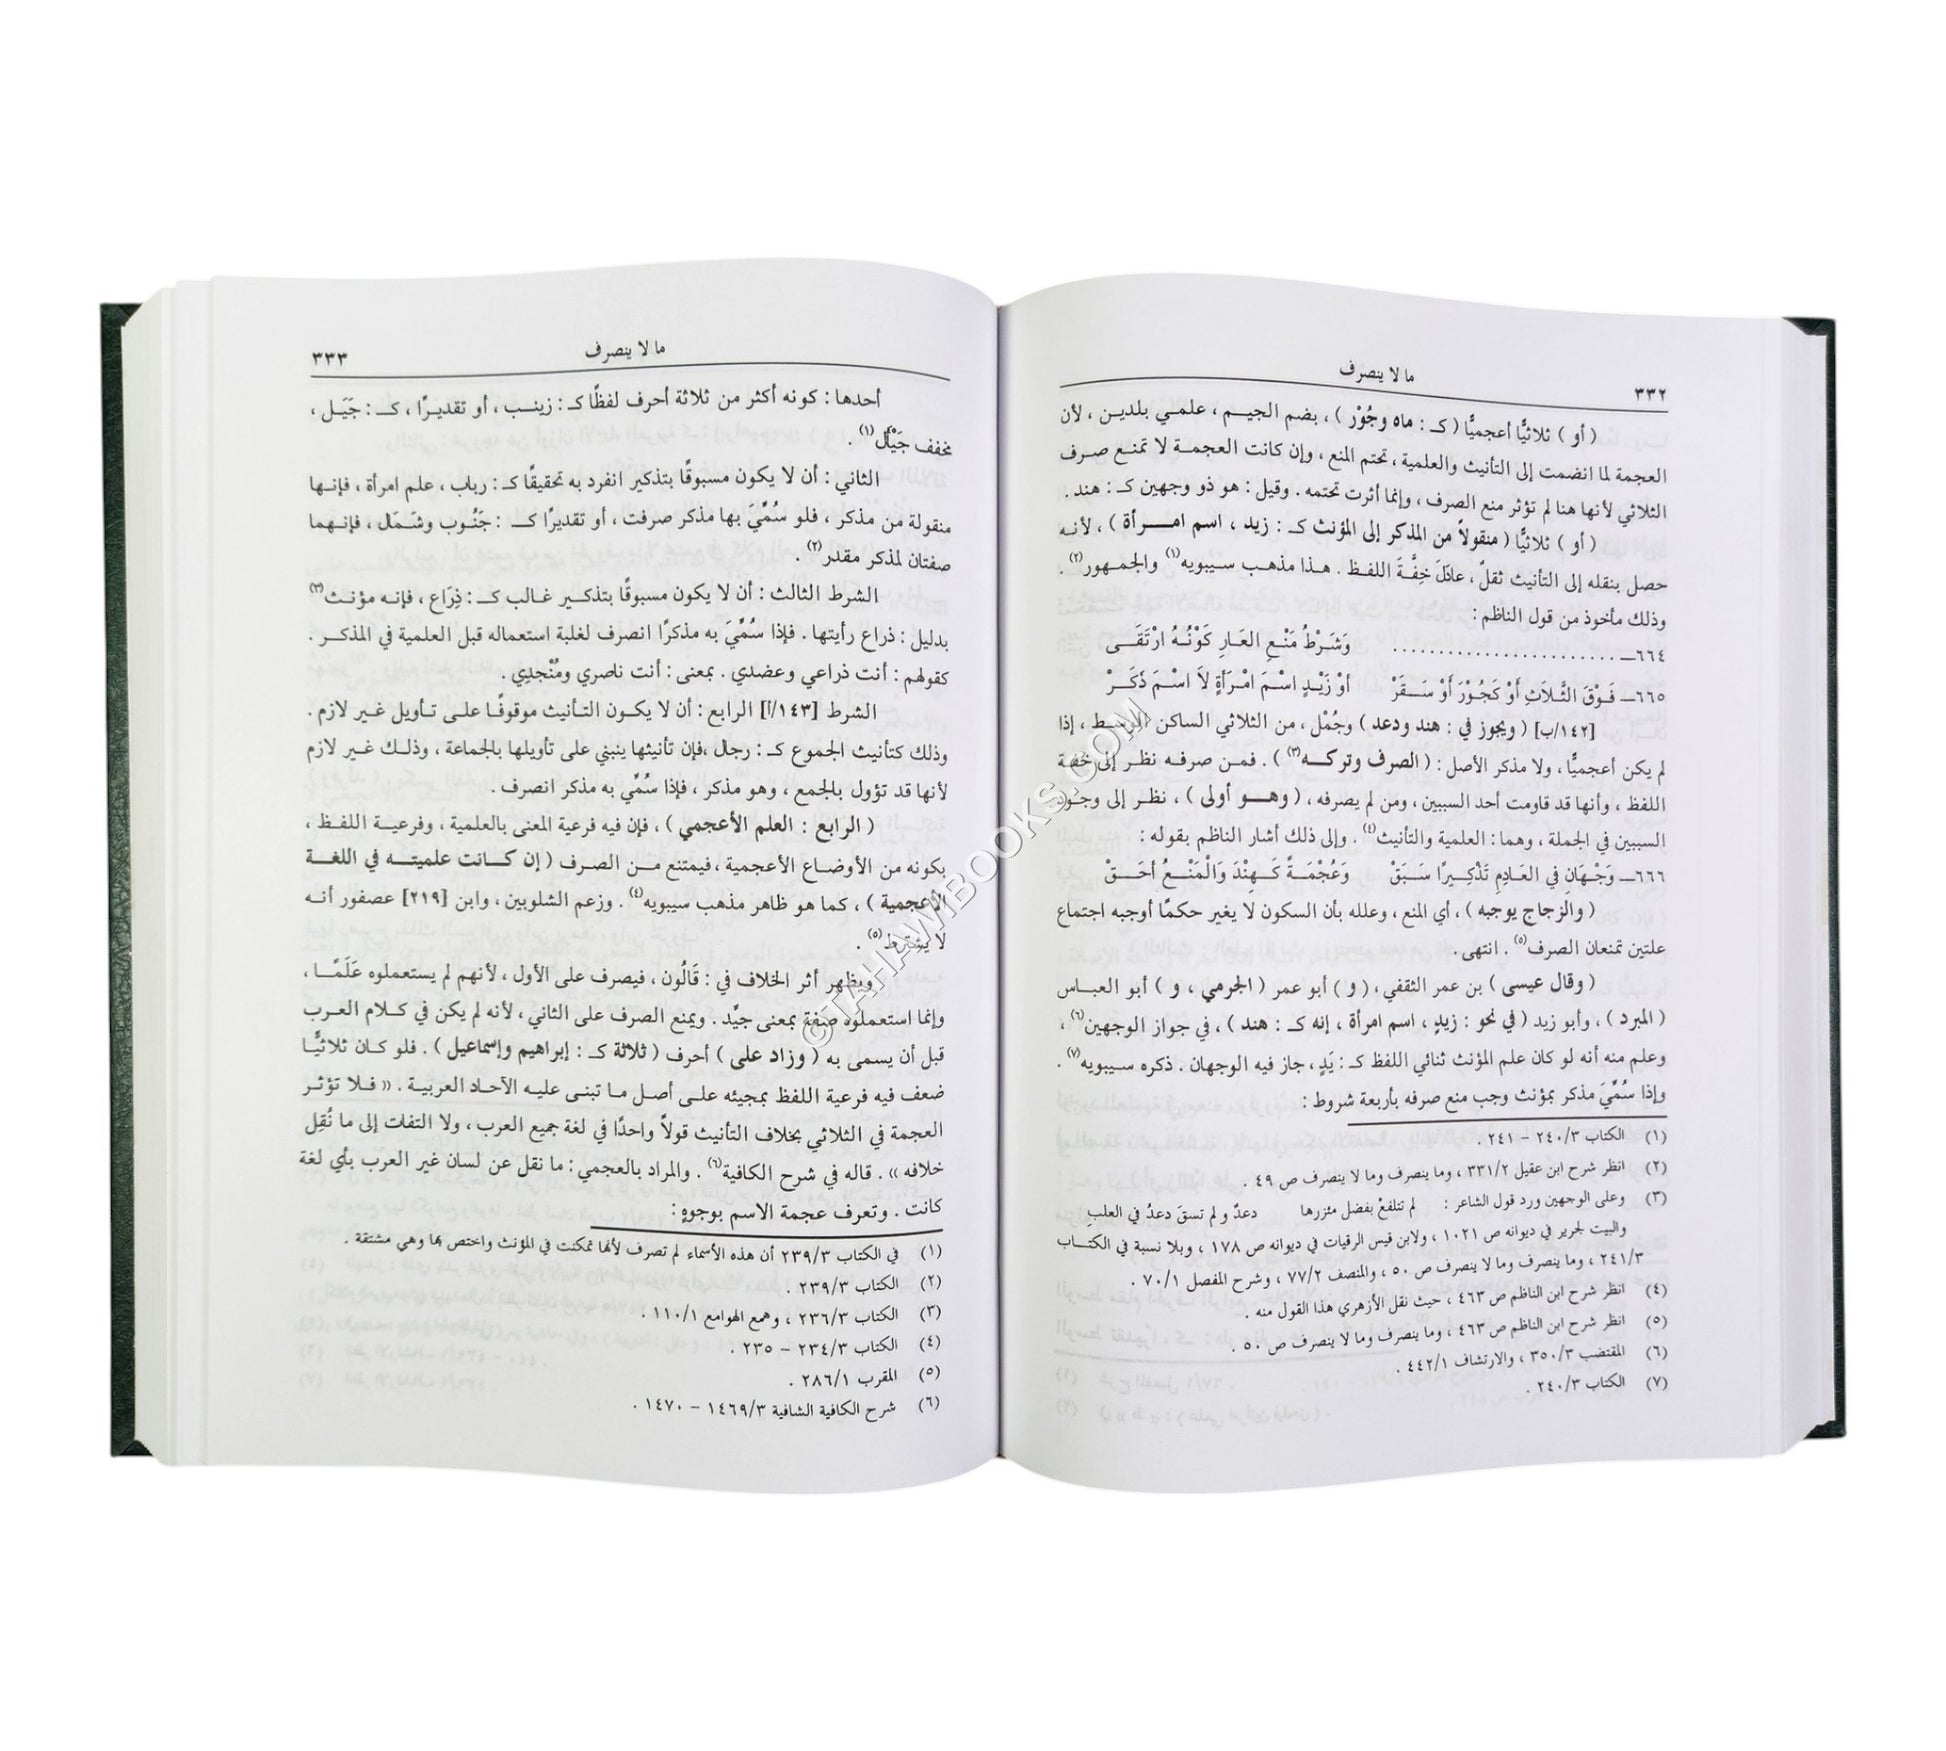 ٣٣٢
ما لا ينصرف
( أو ) ثلاثيًّا أعجميًّا ( كـ : ماه وجُوْر ) ، بضم الجيـم ، علمي بلديـن ، لأن
العجمة لما انضمت إلى التأنيث والعلمية ، تحتم المنع ، وإن كانت العجمـة لا تمنـع صـرف
الثلاثي لأنها هنا لم تؤثر منع الصرف ، وإنما أثرت تحتمه . وقيل : هو ذو وجهين كـ : هند .
( أو ) ثلاثيًّا ( منقولاً من المذكر إلى المؤنث كـ : زيد ، اسم امـــرأة ) ، لأنـه
حصل بنقله إلى التأنيث ثقلٌ ، عادَلَ خِفَّةَ اللفظ . هـذا مذهـب سـيبويه(١) والجمهـور(٢) .
وذلك مأخوذ من قول الناظم :
٦٦٤ــ ........................ وَشَرْطُ مَنْعِ العَارِ كَوْنُـهُ ارْتَقَـى
٦٦٥ــ فَوْقَ الثَّلَاثِ أَوْ كَجُوْرَ أَوْ سَـقَرْ أوْ زَيْـدٍ اسْـمَ امْـرَأةٍ لاَ اسْـمَ ذَكَـرْ
[١٤٢/ب] ( ويجوز في : هند ودعد ) وجُمْل ، من الثلاثي الساكن الوسـط ، إذا
لم يكن أعجميًّا ، ولا مذكر الأصل : ( الصرف وتركـه(٣) ) . فمـن صرفـه نظـر إلى خفـة
اللفظ ، وأنها قد قاومت أحد السببين ، ومن لم يصرفه ، ( وهــو أولى ) ، نظـر إلى وجـود
السببين في الجملة ، وهما : العلمية والتأنيث(٤) . وإلى ذلك أشار الناظم بقوله :
٦٦٦ــ وَجْـهَانِ في العَـادِمِ تَذْكِـيرًا سَـبَقْ وَعُجْمَـةً كَـهِنْدَ وَالْمَنْـعُ أحَـقْ
( والزجاج يوجبه ) ، أي المنع ، وعلله بأن السكون لا يغير حكمًا أوجبه اجتماع
علتين تمنعان الصرف(٥) . انتهى .
( وقال عيسى ) بن عمر الثقفي ، ( و ) أبو عمر ( الجرمي ، و ) أبو العبـاس
( المبرد ) ، وأبو زيد ( في نحو : زيدٍ ، اسم امرأة ، إنه كـ : هند ) ، في جواز الوجهين(٦) ،
وعلم منه أنه لو كان علم المؤنث ثنائي اللفظ كـ : يَدٍ ، جاز فيه الوجهان . ذكره سـيبويه(٧) .
وإذا سُمِّيَ مذكر بمؤنث وجب منع صرفه بأربعة شروط :
(١) الكتاب ٢٤٠/٣ – ٢٤١ .
(٢) انظر شرح ابن عقيل ٣٣١/٢ ، وما ينصرف وما لا ينصرف ص ٤٩ .
(٣) وعلى الوجهين ورد قول الشاعر : لم تتلفعْ بفضل مئزرها دعدٌ و لم تسقَ دعدُ في العلبِ
والبيت لجرير في ديوانه ص ١٠٢١ ، ولابن قيس الرقيات في ديوانه ص ١٧٨ ، وبلا نسبة في الكتـاب
٢٤١/٣ ، وما ينصرف وما لا ينصرف ص ٥٠ ، والمنصف ٧٧/٢ ، وشرح المفصل ٧٠/١ .
(٤) انظر شرح ابن الناظم ص ٤٦٣ ، حيث نقل الأزهري هذا القول منه .
(٥) انظر شرح ابن الناظم ص ٤٦٣ ، وما ينصرف وما لا ينصرف ص ٥٠ .
(٦) المقتضب ٣٥٠/٣ ، والارتشاف ٤٤٢/١ .
(٧) الكتاب ٢٤٠/٣ .
ما لا ينصرف
٣٣٣
أحدها : كونه أكثر من ثلاثة أحرف لفظًا كـ : زينـب ، أو تقديـرًا ، كـ : جَيَـل ،
مخفف جَيْأَل(١) .
الثاني : أن لا يكون مسبوقًا بتذكير انفرد به تحقيقًا كـ : رباب ، علم امرأة ، فإنـها
منقولة من مذكر ، فلو سُمِّيَ بها مذكر صرفت ، أو تقديرًا كـ : جَنُـوب وشَـمَال ، فإنـهما
صفتان لمذكر مقدر(٢) .
الشرط الثالث : أن لا يكون مسبوقًا بتذكـير غـالب كـ : ذِرَاع ، فإنـه مؤنـث(٣)
بدليل : ذراع رأيتها . فإذا سُمِّيَ به مذكرًا انصرف لغلبة استعماله قبل العلمية في المذكـر .
كقولهم : أنت ذراعي وعضدي . بمعنى : أنت ناصري ومُنْجدِي .
الشرط [١٤٣/أ] الرابع : أن لا يكـون التـأنيث موقوفًـا علـى تـأويل غـير لازم .
وذلك كتأنيث الجموع كـ : رجال ،فإن تأنيثها ينبني على تأويلها بالجماعة ، وذلـك غـير لازم
لأنها قد تؤول بالجمع ، وهو مذكر ، فإذا سُمِّي به مذكر انصرف .
( الرابع : العلم الأعجمي ) ، فإن فيه فرعية المعنى بالعلمية ، وفرعيـة اللفـظ ،
بكونه من الأوضاع الأعجمية ، فيمتنع مـن الصـرف ( إن كـانت علميتـه في اللغـة
الأعجمية ) ، كما هو ظاهر مذهب سيبويه(٤) . وزعم الشلوبين ، وابن [٢١٩] عصفور أنـه
لا يشترط(٥) .
ويظهر أثر الخلاف في : قَالُون ، فيصرف على الأول ، لأنهم لم يستعملوه عَلَمًـا ،
وإنما استعملوه صفة بمعنى جيِّد . ويمنع الصرف على الثاني ، لأنه لم يكن في كـلام العـرب
قبل أن يسمى به ( وزاد على ) أحرف ( ثلاثة كـ : إبراهيم وإسماعيل ) . فلو كـان ثلاثيًّـا
ضعف فيه فرعية اللفظ بمجيئه علـى أصـل مـا تبنـى عليـه الآحـاد العربيـة . (( فـلا تؤثـر
العجمة في الثلاثي بخلاف التأنيث قولاً واحدًا في لغة جميع العرب ، ولا التفات إلى ما نُقِل
خلافه )) . قاله في شرح الكافية(٦) . والمراد بالعجمي : ما نقل عن لسان غير العرب بأي لغة
كانت . وتعرف عجمة الاسم بوجوهٍ :
(١) في الكتاب ٢٣٩/٣ أن هذه الأسماء لم تصرف لأنها تمكنت في المؤنث واختص بها وهي مشتقة .
(٢) الكتاب ٢٣٩/٣ .
(٣) الكتاب ٢٣٦/٣ ، وهمع الهوامع ١١٠/١ .
(٤) الكتاب ٢٣٤/٣ – ٢٣٥ .
(٥) المقرب ٢٨٦/١ .
(٦) شرح الكافية الشافية ١٤٦٩/٣ – ١٤٧٠ .
©TAHAWIBOOKS.COM